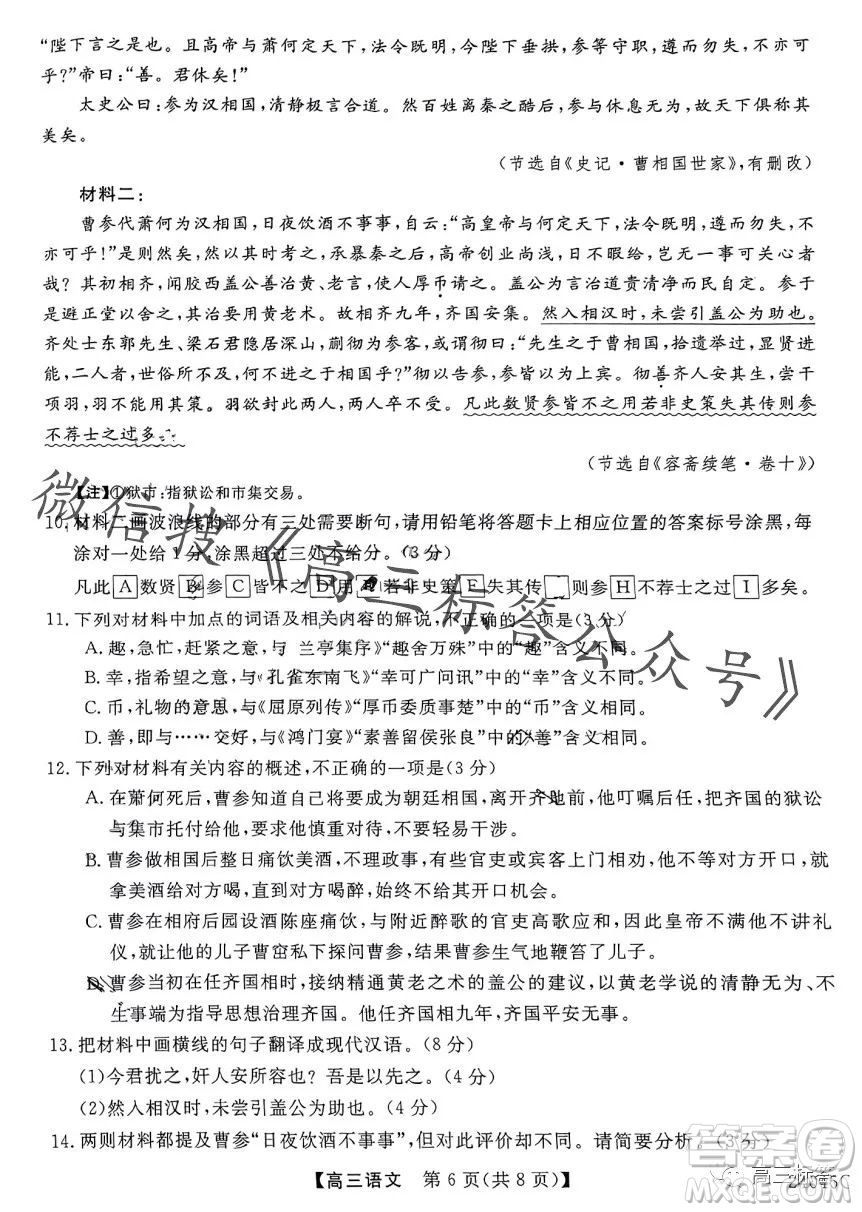 “陛下言之是也。且高帝与萧何定天下，法令既明，今陛下垂拱，参等守职，遵而勿失，不亦可
乎？”帝曰：“善。君休矣！”
太史公曰：参为汉相国，清静极言合道。然百姓离秦之酷后，参与休息无为，故天下俱称其
美矣。
（节选自《史记·曹相国世家》，有删改）
材料二：
曹参代萧何为汉相国，日夜饮酒不事事，自云：“高皇帝与何定天下，法令既明，遵而勿失，不
亦可乎！”是则然矣，然以其时考之，承暴秦之后，高帝创业尚浅，日不暇给，岂无一事可关心者
哉？其初相齐，闻胶西盖公善治黄、老言，使人厚币请之。盖公为言治道贵清净而民自定。参于
是避正堂以舍之，其治要用黄老术。故相齐九年，齐国安集。然入相汉时，未尝引盖公为助也。
齐处士东郭先生、梁石君隐居深山，蒯彻为参客，或谓彻曰：“先生之于曹相国，拾遗举过，显贤进
能，二人者，世俗所不及，何不进之于相国乎？”彻以告参，参皆以为上宾。彻善齐人安其生，尝干
项羽，羽不能用其策。羽欲封此两人，两人卒不受。凡此数贤参皆不之用若非史策失其传则参
不荐士之过多
（节选自《容斋续笔·卷十》）
【注】①狱市：指狱讼和市集交易。
10.材料二画波浪线的部分有三处需要断句，请用铅笔将答题卡上相应位置的答案标号涂黑，每
涂对一处给1分，涂黑超过三处不给分。（3分）
凡此A数贤B参C皆不之D用若非史策E失其传则参H不荐士之过I多矣。
11.下列对材料中加点的词语及相关内容的解说，不正确的一项是（3分）
A.趣，急忙，赶紧之意，与兰亭集序》“趣舍万殊”中的“趣”含义不同。
B.幸，指希望之意，与《孔雀东南飞》“幸可广问讯”中的“幸”含义不同。
C.币，礼物的意思，与《屈原列传》“厚币委质事楚”中的“币”含义相同。
D.善，即与……交好，与《鸿门宴》“素善留侯张良”中的“善”含义相同。
12.下列对材料有关内容的概述，不正确的一项是（3分）
A.在萧何死后，曹参知道自己将要成为朝廷相国，离开齐地前，他叮嘱后任，把齐国的狱讼
与集市托付给他，要求他慎重对待，不要轻易干涉。
B.曹参做相国后整日痛饮美酒，不理政事，有些官吏或宾客上门相劝，他不等对方开口，就
拿美酒给对方喝，直到喝醉，始终不给人开口的机会。
C.曹参在相府后园设酒陈座痛饮，与附近醉歌的官吏高歌应和，因此皇帝认为他不讲礼
仪，就让他的儿子曹窋私下探问曹参，结果曹参生气地鞭笞了儿子。
D.曹参当初在任齐国相时，接纳精通黄老之术的盖公的建议，以黄老学说的清静无为、不
生事端为指导思想治理齐国。他任齐国相九年，齐国平安无事。
13.把材料中画横线的句子翻译成现代汉语。（8分）
（1）今君扰之，奸人安所容也？吾是以先之。（4分）
（2）然入相汉时，未尝引盖公为助也。（4分）
14.两则材料都提及曹参“日夜饮酒不事事”，但对此评价却不同。请简要分析。（3分）
【高三语文 第6页（共8页）】
微信搜《高三标答公众号》
答案圈
MXQE.COM